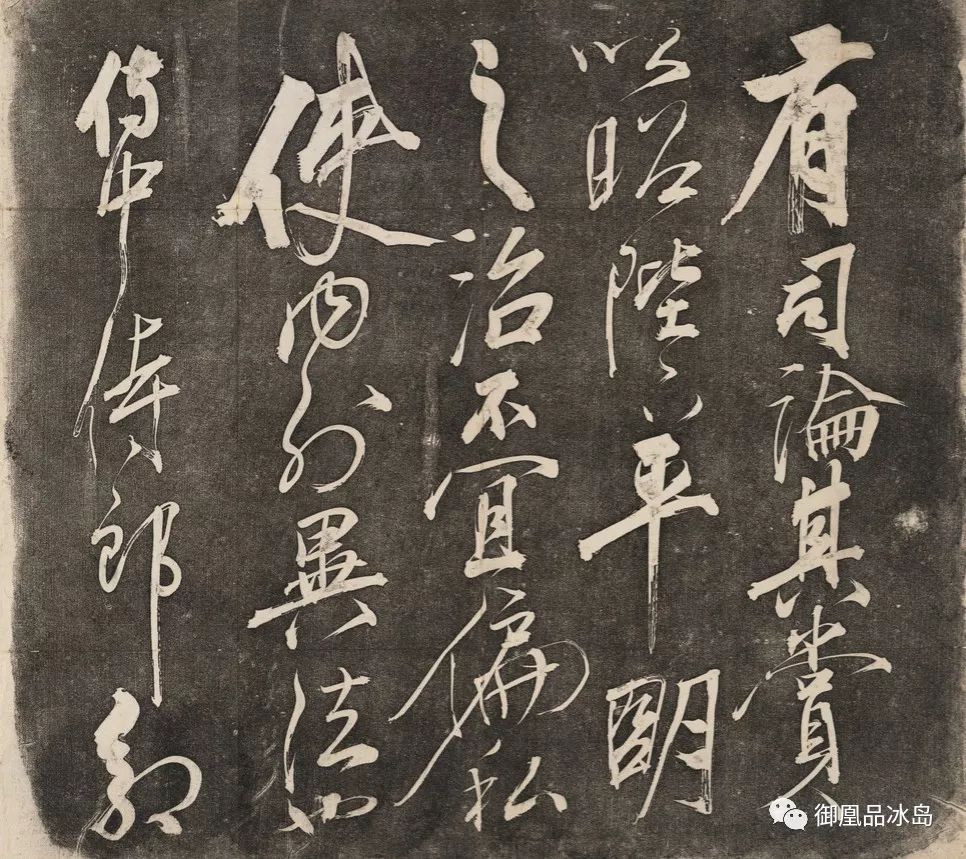 有司論其賞
以昭陛下平明
之治不宜偏私
使内外異法也
侍中侍郎郭
御凰品冰岛